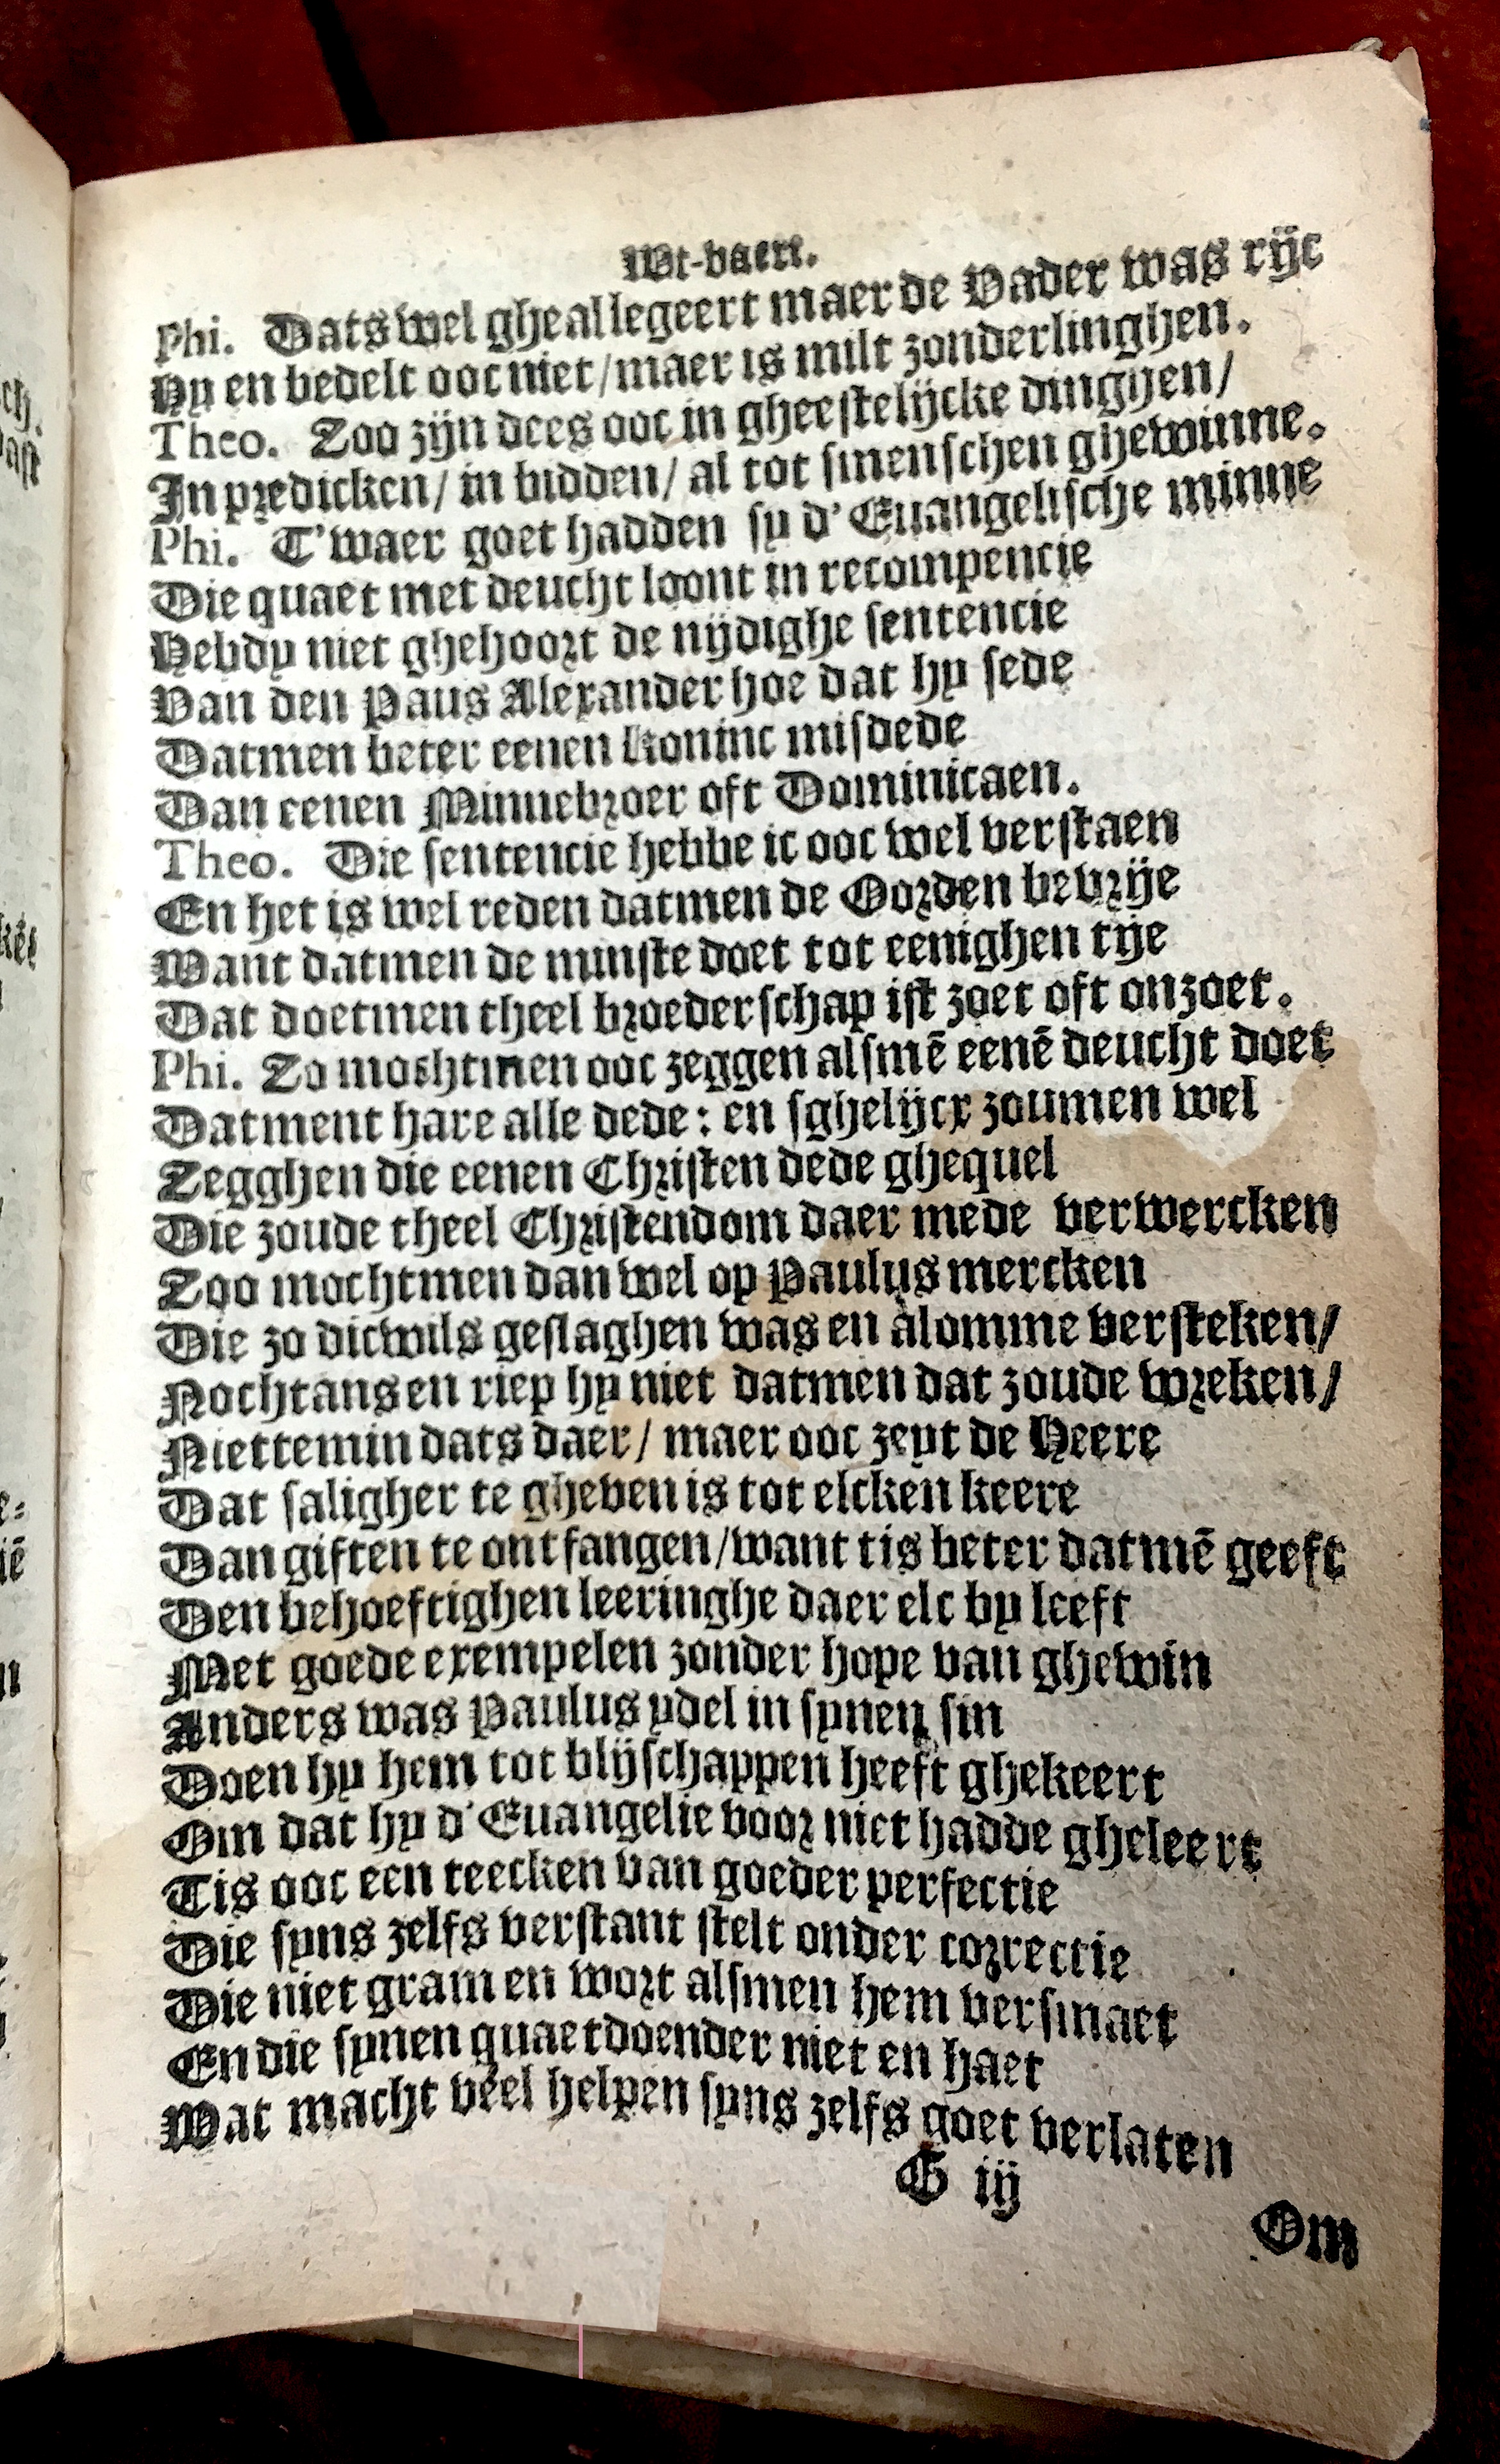 Wt-vaert.
Phi. Dats wel gheallegeert maer de Vader was rijc
Hy en bedelt ooc niet/maer is milt zonderlinghen.
Theo. Zoo zijn dees ooc in gheestelijcke dinghen/
In predicken/ in bidden/ al tot smenschen ghewinne.
Phi. T'waer goet hadden sy d'Euangelische minne
Die quaet met deucht loont in recompencie
Hebdy niet ghehoort de nijdighe sentencie
Van den Paus Alexander hoe dat hy sede
Datmen beter eenen koninc misdede
Dan eenen Minnebroer oft Dominicaen.
Theo. Die sentencie hebbe ic ooc wel verstaen
En het is wel reden datmen de Oorden bevrije
Want datmen de minste doet tot eenighen tije
Dat doetmen theel broederschap ist zoet oft onzoet.
Phi. Zo mochtmen ooc zeggen alsmē eenē deucht doet
Datment hare alle dede: en sghelijcx zoumen wel
Zegghen die eenen Christen dede ghequel
Die zoude theel Christendom daer mede verwercken
Zoo mochtmen dan wel op Paulus mercken
Die zo dicwils geslaghen was en alomme versteken/
Nochtans en riep hy niet datmen dat zoude wreken/
Niettemin dats daer/ maer ooc zeyt de Heere
Dat saligher te gheven is tot elcken keere
Dan giften te ontfangen/want tis beter datmē geeft
Den behoeftighen leeringhe daer elc by leeft
Met goede exempelen zonder hope van ghewin
Anders was Paulus ydel in synen sin
Doen hy hem tot blijschappen heeft ghekeert
Om dat hy d'Euangelie voor niet hadde gheleert
Tis ooc een teecken van goeder perfectie
Die syns zelfs verstant stelt onder correctie
Die niet gram en wort alsmen hem versmaet
En die synen quaetdoender niet en haet
Wat macht veel helpen syns zelfs goet verlaten
G ij
Om